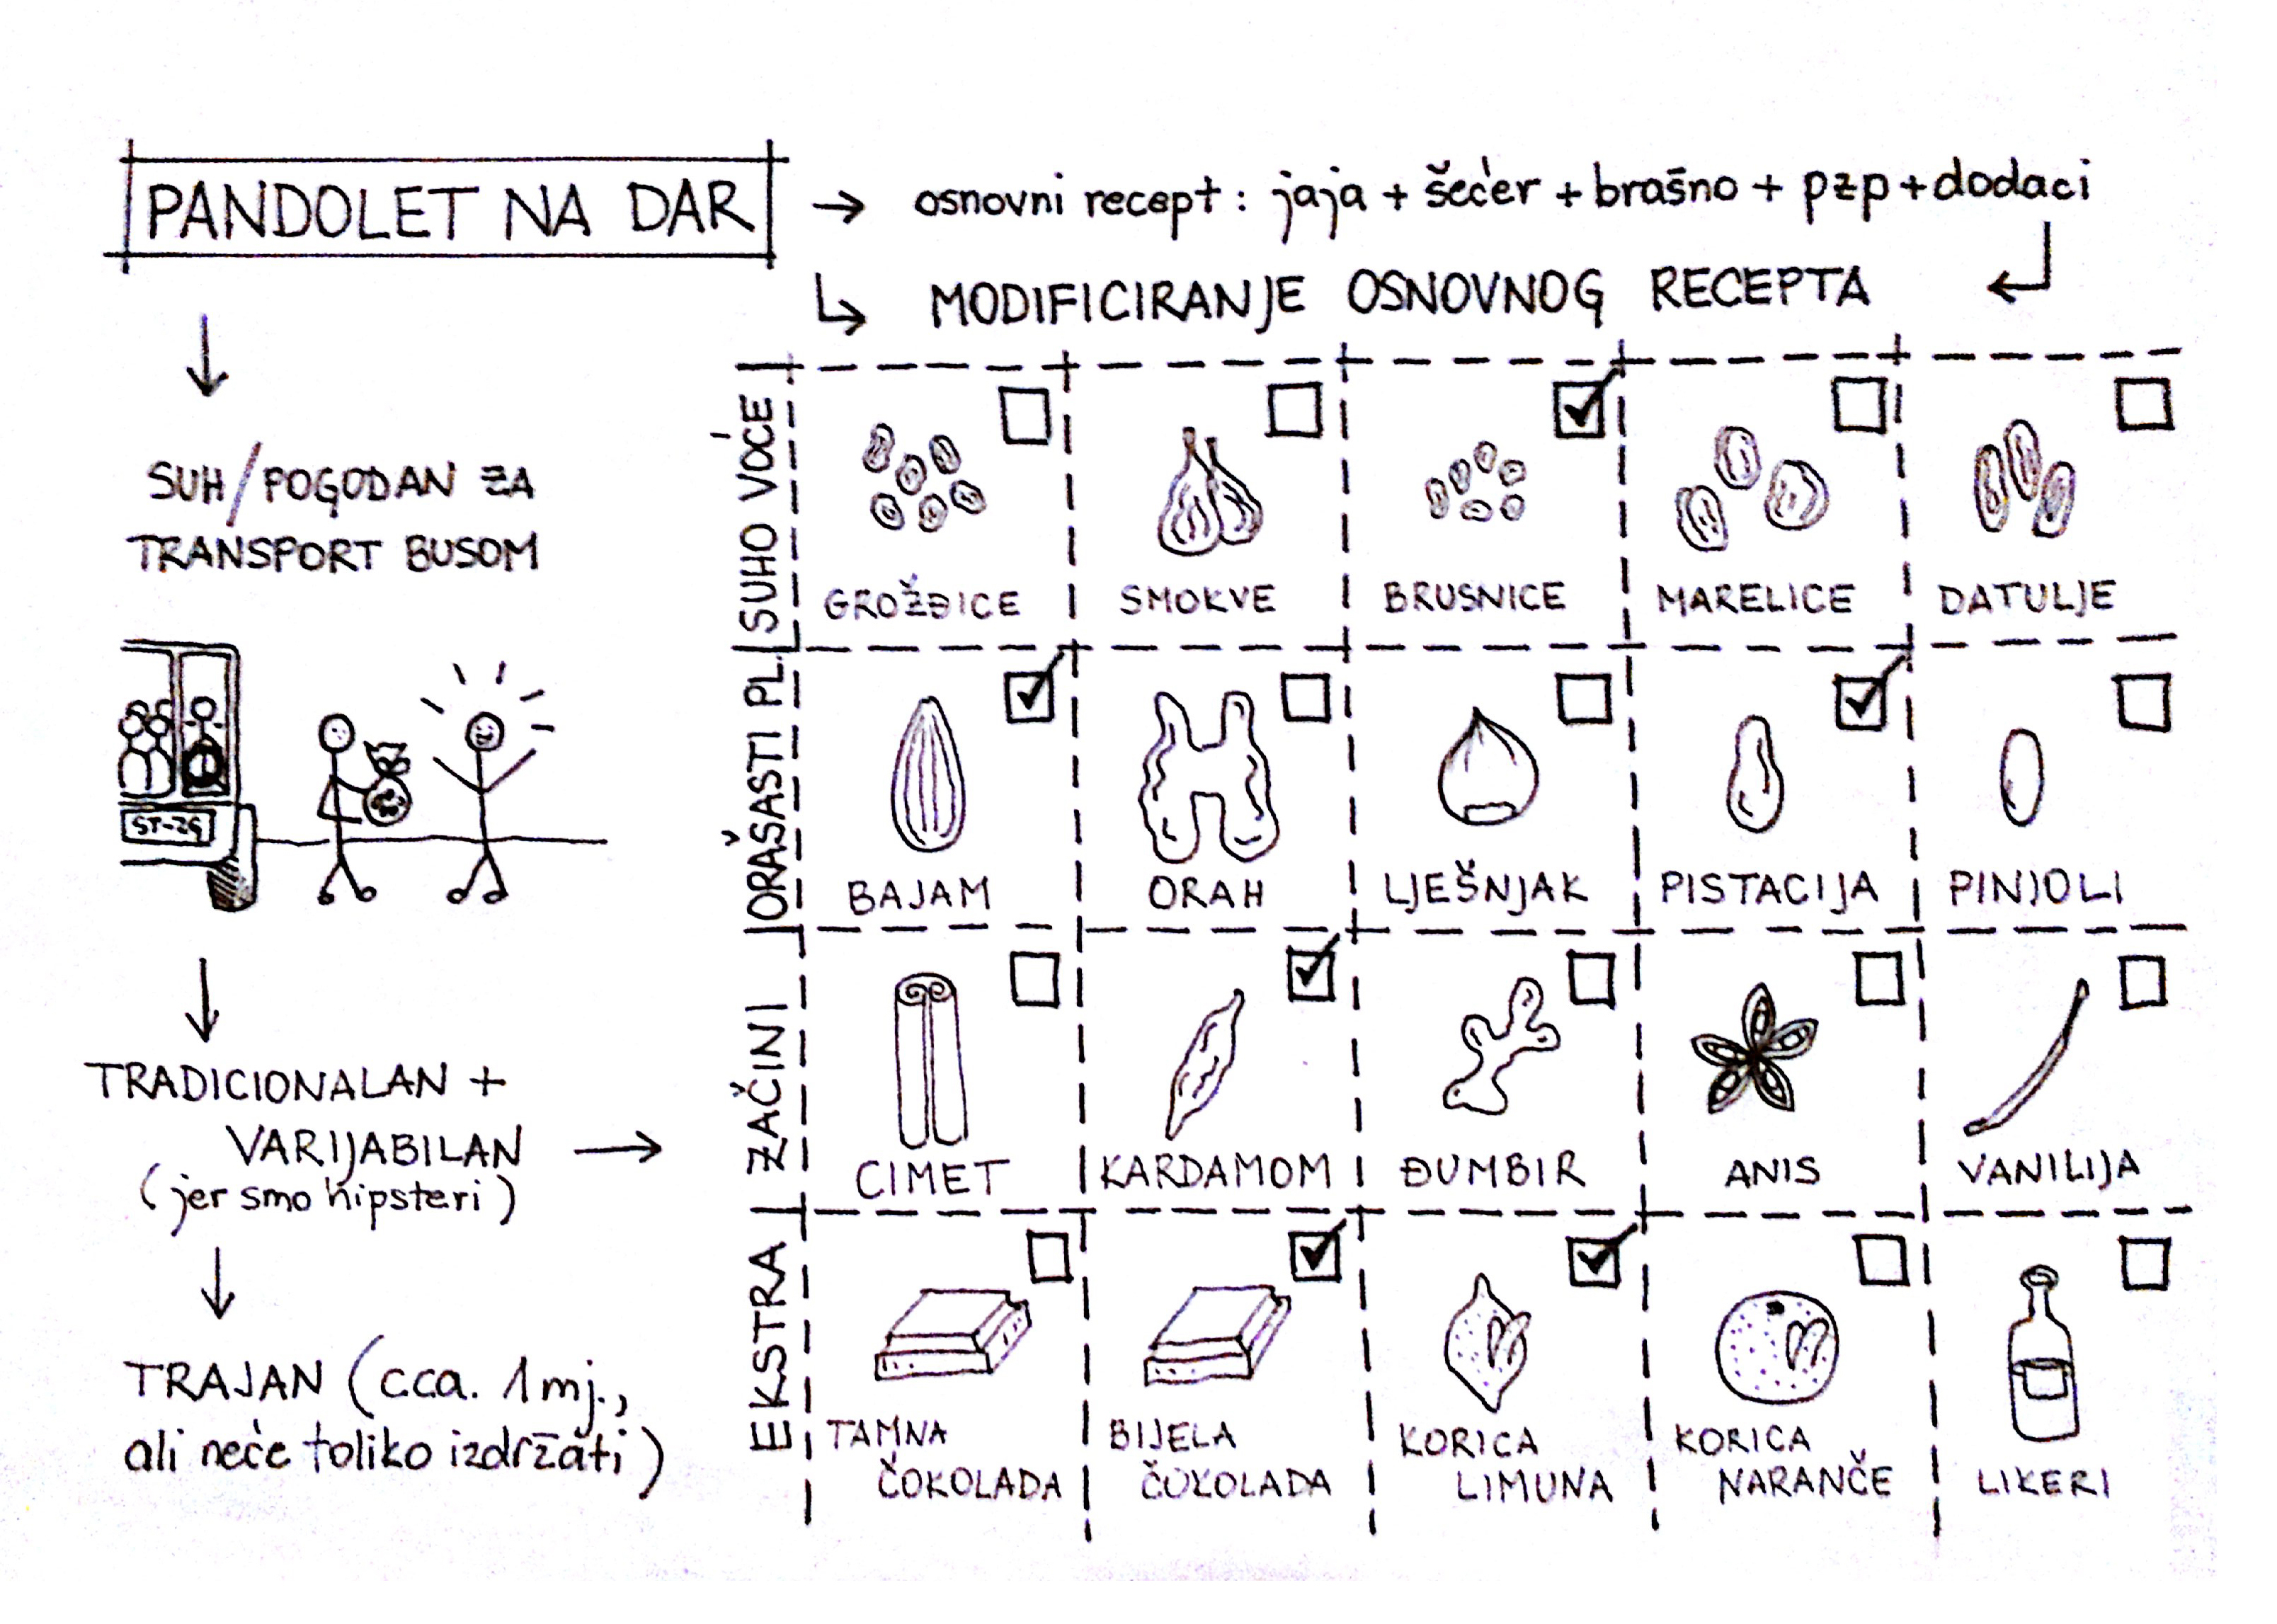 PANDOLET NA DAR
→ osnovni recept: jaja + šećer + brašno + pzp + dodaci
MODIFICIRANJE OSNOVNOG RECEPTA
SUH/POGODAN ZA
TRANSPORT BUSOM
ST-ZG
TRADICIONALAN +
VARIJABILAN →
(jer smo hipsteri)
TRAJAN (cca. 1 mj.,
ali neće toliko izdržati)
SUHO VOĆE
GROŽĐICE
SMOKVE
BRUSNICE
MARELICE
DATULJE
ORAŠASTI PL.
BAJAM
ORAH
LJEŠNJAK
PISTACIJA
PINJOLI
ZAČINI
CIMET
KARDAMOM
ĐUMBIR
ANIS
VANILIJA
EKSTRA
TAMNA
ČOKOLADA
BIJELA
ČOKOLADA
KORICA
LIMUNA
KORICA
NARANČE
LIKERI